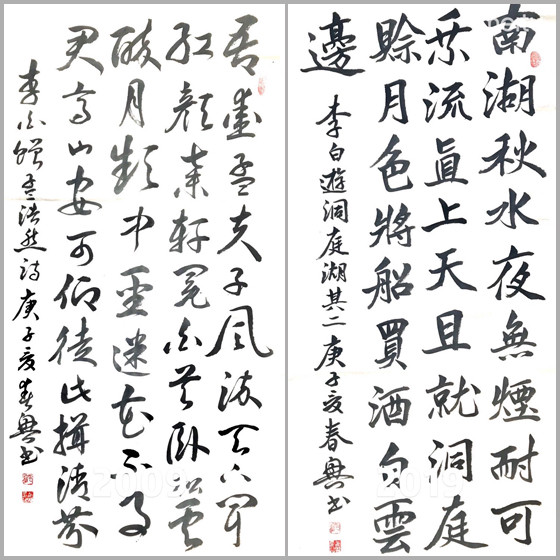 吾愛孟夫子風流天下聞
紅顏棄軒冕白首卧松雲
醉月頻中聖迷花不事
君高山安可仰徒此揖清芬
李白贈孟浩然詩庚子夏春興書
2009
南湖秋水夜無煙耐可
乘流直上天且就洞庭
賒月色將船買酒白雲
邊
李白遊洞庭湖其二庚子夏春興書
2019